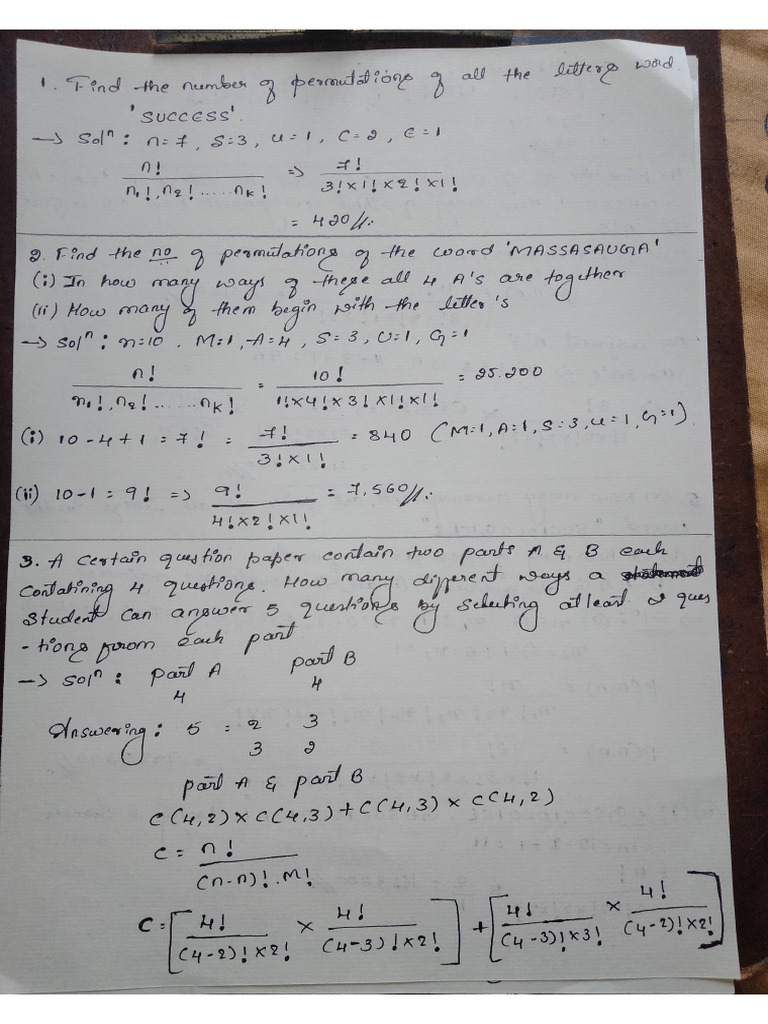 1. Find the number of permutations of all the letters word.
'SUCCESS'.
→ Solⁿ: n=7, S=3, U=1, C=2, E=1
n! / n₁!, n₂! ..... nₖ! => 7! / 3!×1!×2!×1!
= 420//.
2. Find the no of permutations of the word 'MASSASAUGA'
(i) In how many ways of these all 4 A's are together
(ii) How many of them begin with the letter's
→ Solⁿ: n=10, M=1, A=4, S=3, U=1, G=1
n! / n₁!, n₂! ..... nₖ! = 10! / 1!×4!×3!×1!×1! = 25.200
(i) 10-4+1 = 7! = 7! / 3!×1! = 840 (M=1, A=1, S=3, U=1, G=1)
(ii) 10-1 = 9! => 9! / 4!×2!×1! = 7,560//.
3. A certain question paper contain two parts A & B each
Contatining 4 questions. How many different ways a
Student can answer 5 questions by Selecting atleast 2 ques
-tions from each part
→ Solⁿ: part A part B
4 4
Answering: 5 = 2 3
3 2
part A & part B
C(4,2) × C(4,3) + C(4,3) × C(4,2)
C = n! / (n-n)!.M!
C = [4! / (4-2)!×2! × 4! / (4-3)!×2!] + [4! / (4-3)!×3! × 4! / (4-2)!×2!]